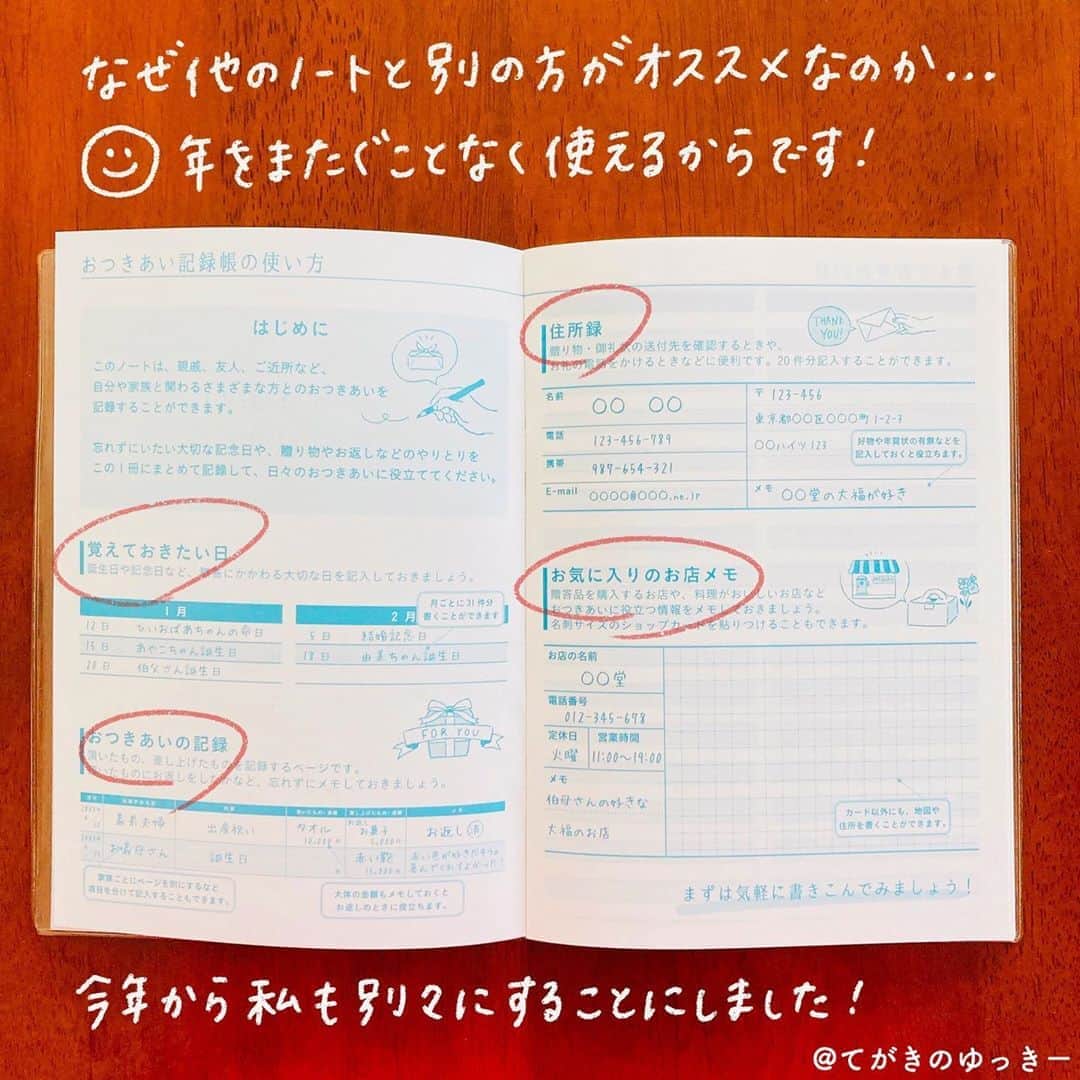 なぜ他のノートと別の方がオススメなのか...
年をまたぐことなく使えるからです！
おつきあい記録帳の使い方
はじめに
このノートは、親戚、友人、ご近所など、
自分や家族と関わるさまざまな方とのおつきあいを
記録することができます。
忘れずにいたい大切な記念日や、贈り物やお返しなどのやりとりを
この1冊にまとめて記録して、日々のおつきあいに役立ててください。
覚えておきたい日
誕生日や記念日など、
にかかわる大切な日を記入しておきましょう。
1月
12日 ひいおばあちゃんの命日
15日 あやこちゃん誕生日
20日 伯父さん誕生日
2月
月ごとに31件分
書くことができます
5日 結婚記念日
18日 由美ちゃん誕生日
おつきあいの記録
FOR YOU
頂いたもの、差し上げたものを記録するページです。
頂いたものにお返しをしたかなど、忘れずにメモしておきましょう。
夫婦 出産祝い タオル 10,000円 お菓子 5,000円 お返し 済
お義母さん 誕生日 赤い鞄 15,000円
家族ごとにページを別にするなど
項目を分けて記入することもできます。
大体の金額もメモしておくと
お返しのときに役立ちます。
住所録
THANK YOU!
贈り物・御礼状の送付先を確認するときや、
お礼の電話をかけるときなどに便利です。20件分記入することができます。
名前 〇〇 〇〇
〒 123-456
東京都〇〇区〇〇〇町1-2-3
〇〇ハイツ123
電話 123-456-789
好物や年賀状の有無などを
記入しておくと役立ちます。
携帯 987-654-321
E-mail 〇〇〇〇@〇〇〇.ne.jr
メモ 〇〇堂の大福が好き
お気に入りのお店メモ
贈答品を購入するお店や、料理がおいしいお店など
おつきあいに役立つ情報をメモしておきましょう。
名刺サイズのショップカードを貼りつけることもできます。
お店の名前
〇〇堂
電話番号
012-345-678
定休日 営業時間
火曜 11:00〜19:00
メモ
伯母さんの好きな
大福のお店
カード以外にも、地図や
住所を書くことができます。
まずは気軽に書きこんでみましょう！
今年から私も別々にすることにしました！
@てがきのゆっきー